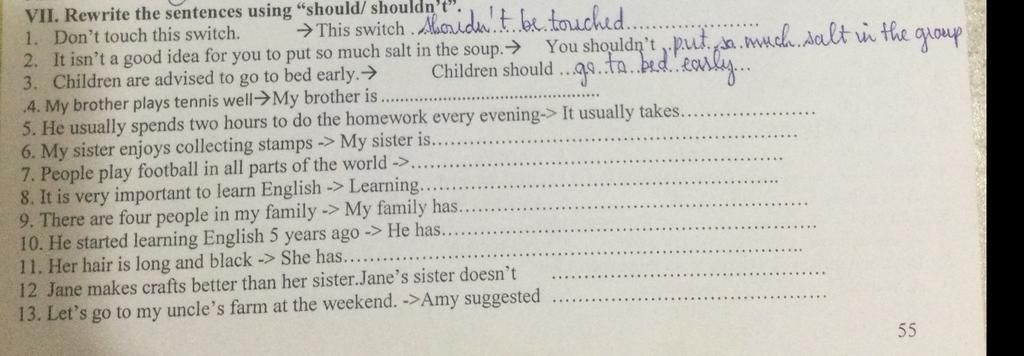 VII. Rewrite the sentences using “should/ shouldn’t”.
1. Don’t touch this switch. →This switch .shouldn't.be.touched...................
2. It isn’t a good idea for you to put so much salt in the soup.→ You shouldn’t .put.so.much.salt in the group
3. Children are advised to go to bed early.→ Children should ...go.to.bed.early...
.4. My brother plays tennis well→My brother is .............................................
5. He usually spends two hours to do the homework every evening-> It usually takes............................
6. My sister enjoys collecting stamps -> My sister is...........................................................................
7. People play football in all parts of the world ->...........................................................................
8. It is very important to learn English -> Learning.......................................................................
9. There are four people in my family -> My family has......................................................................
10. He started learning English 5 years ago -> He has..........................................................................
11. Her hair is long and black -> She has..............................................................................................
12 Jane makes crafts better than her sister.Jane’s sister doesn’t ........................................................
13. Let’s go to my uncle’s farm at the weekend. ->Amy suggested ........................................................
55